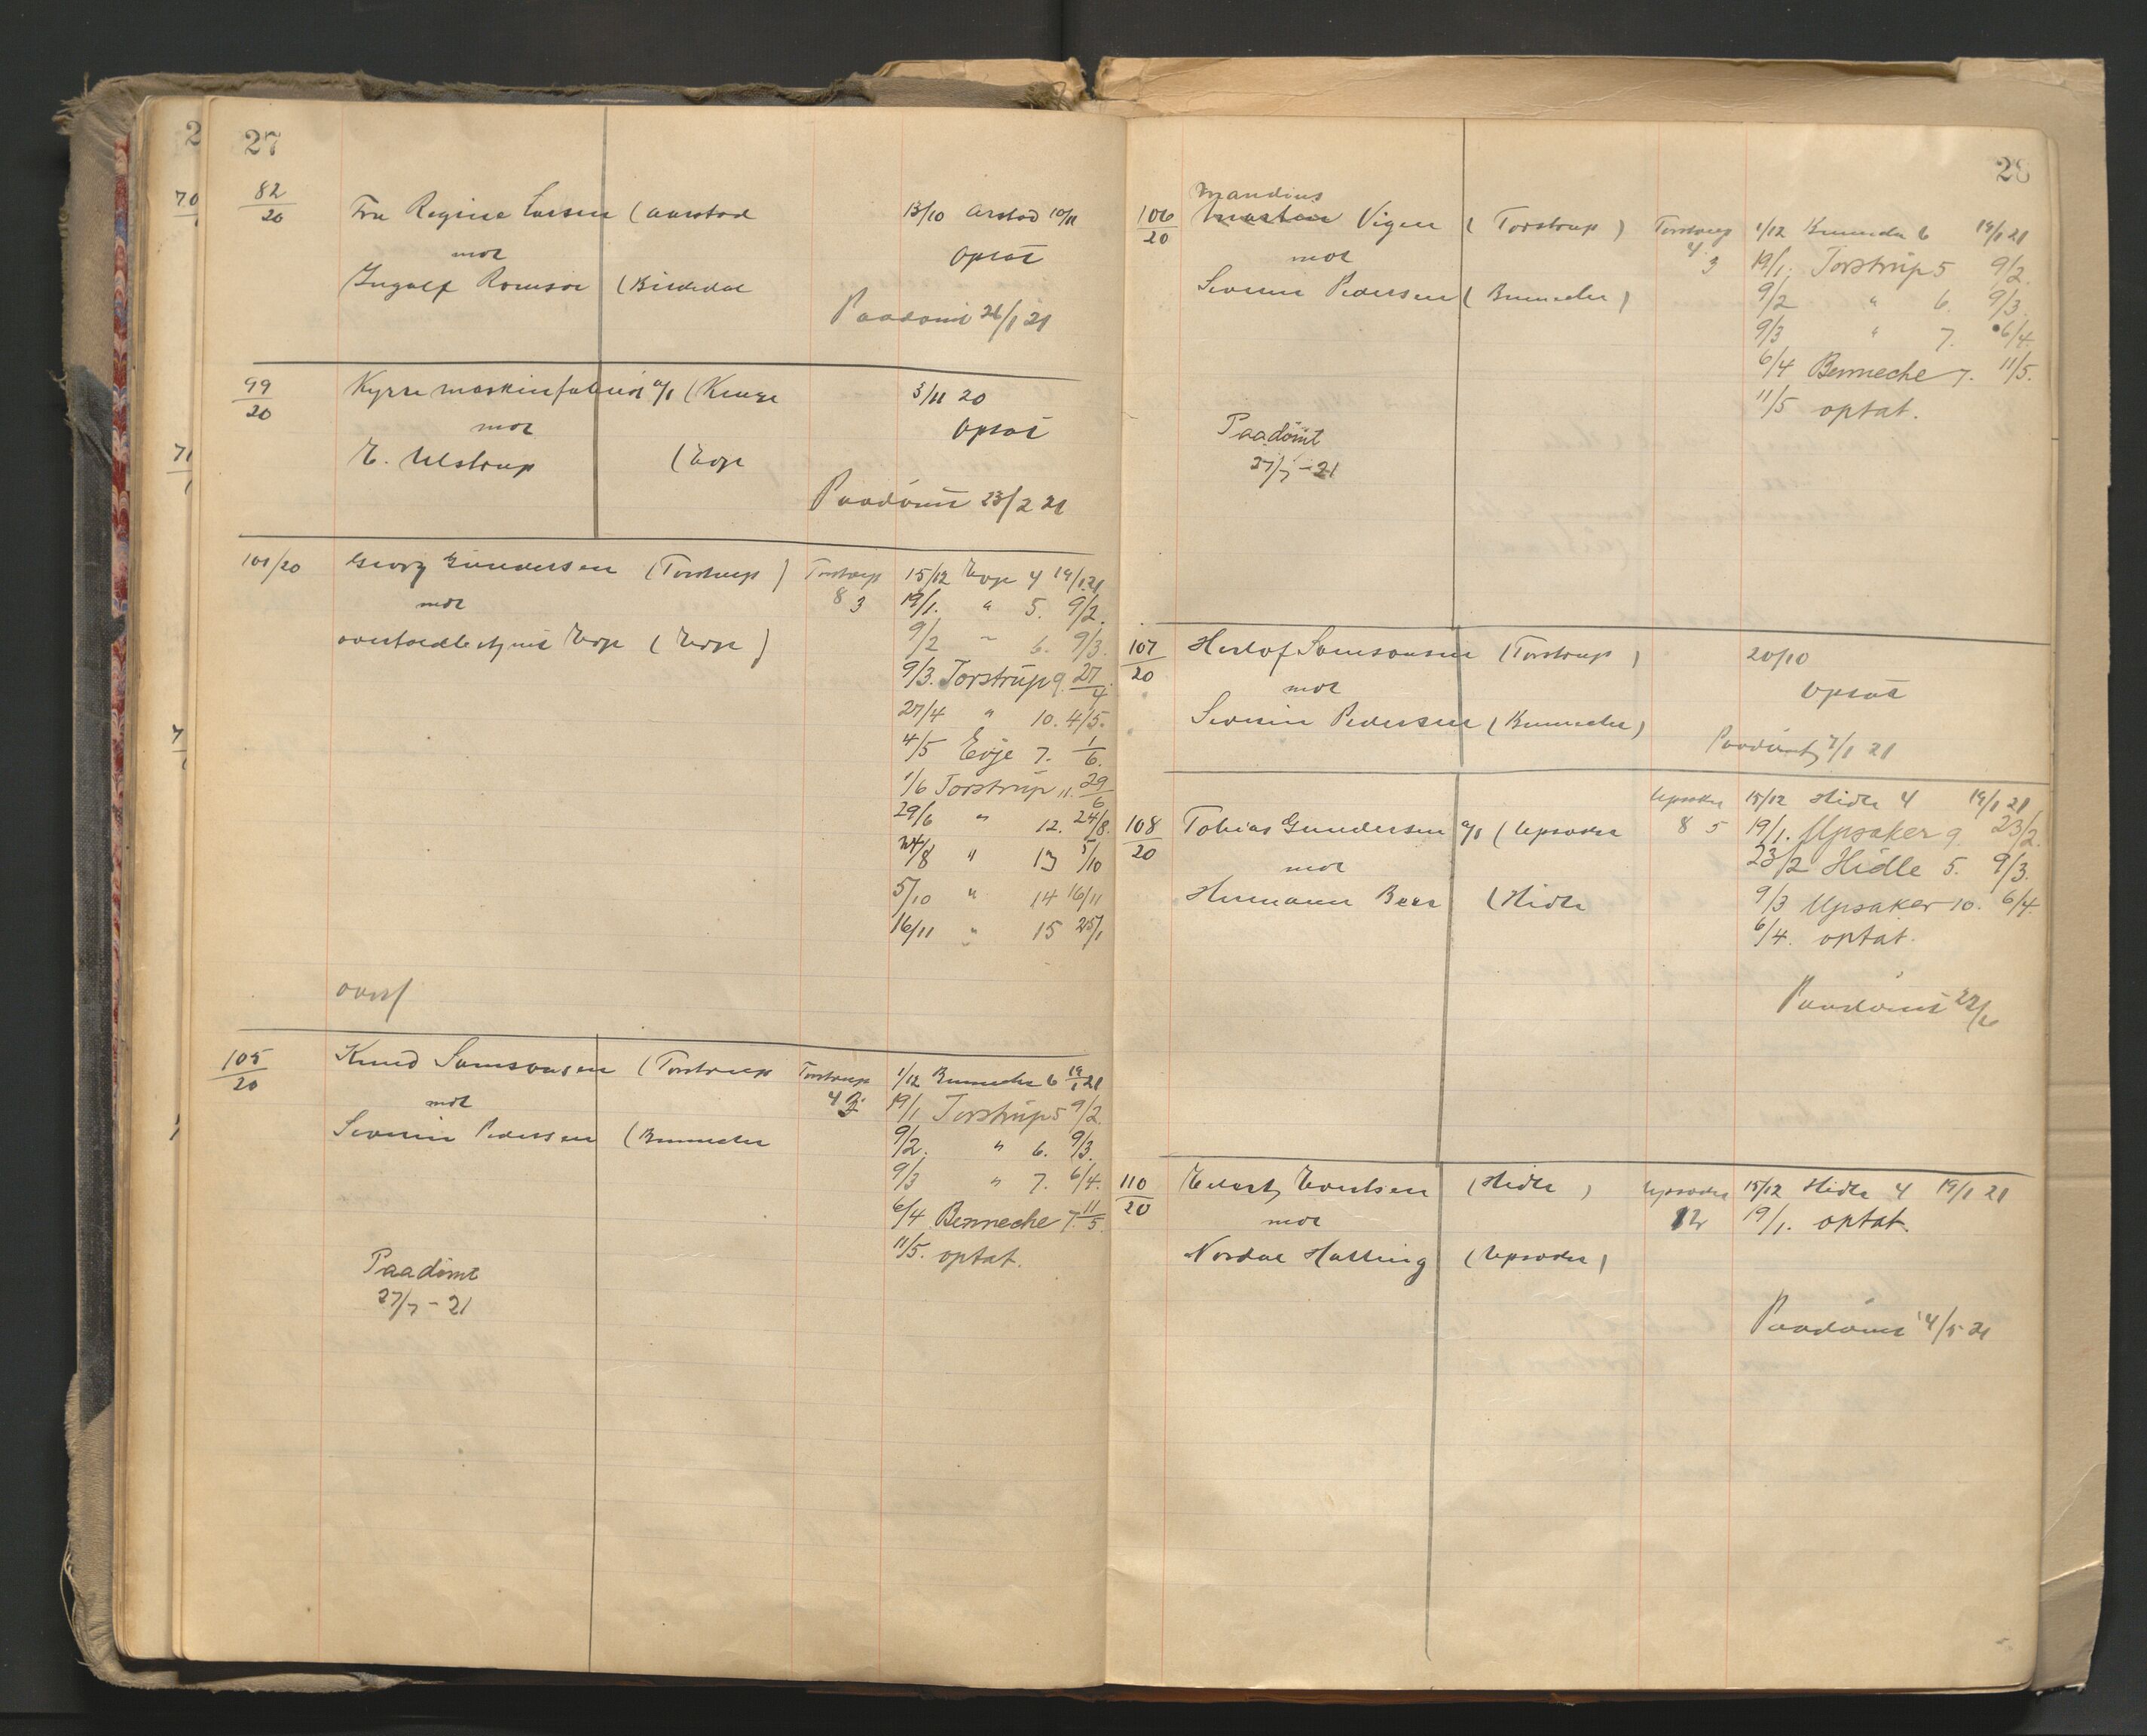 27
82/20 Fru Regine Larsen (Aarstad 13/10 Arstad 10/11
mot optat
Ingolf Romsoe (
Paadømt 26/1 21
99/20 Kyrre maskinfabrik a/s ( 3/11 20
mot optat
E. Ulstrup (Evje
Paadømt 23/2 21
101/20 Georg Gundersen (Torstrup) Torstrup 15/12 Evje 4 19/1 21
mot 8 3 19/1. " 5. 9/2.
Evje (Evje) 9/2 " 6. 9/3.
9/3. Torstrup 9. 27/4
27/4 " 10. 4/5.
4/5 Evje 7. 1/6.
1/6 Torstrup 11. 29/6
29/6 " 12. 24/8.
24/8 " 13 5/10
5/10 " 14 16/11
16/11 " 15 25/1
overf
105/20 Knud Samsonsen (Torstrup Torstrup 1/12 Benneche 6 19/1 21
mot 4 19/1 Torstrup 5 9/2.
Severin Pedersen (Benneche 9/2. " 6. 9/3.
9/3 " 7. 6/4.
6/4 Benneche 7. 11/5.
11/5. optat.
Paadømt
27/7 - 21
28
Mandius
106/20 Vigen (Torstrup) Torstrup 1/12 Benneche 6 19/1 21
mot 4 3 19/1. Torstrup 5 9/2.
Severin Pedersen (Benneche) 9/2 " 6. 9/3.
9/3 " 7. 6/4.
6/4 Benneche 7. 11/5.
11/5 optat.
Paadømt
27/7 - 21
107/20 Herlof Samsonsen (Torstrup) 20/10
mot optat
Severin Pedersen (Benneche)
Paadømt 7/1 21
Upsaker 15/12 Hidle 4 19/1 21
108/20 Tobias Gundersen a/s (Upsaker 8 5 19/1. Upsaker 9. 23/2.
mot 23/2 Hidle 5. 9/3.
Hermann Beer (Hidle 9/3 Upsaker 10. 6/4.
6/4. optat.
Paadømt 22/6
110/20 Evertsen (Hidle) Upsaker 15/12 Hidle 4 19/1 21
mot 12 19/1. optat.
Nordal Halling (Upsaker)
Paadømt 4/5 21